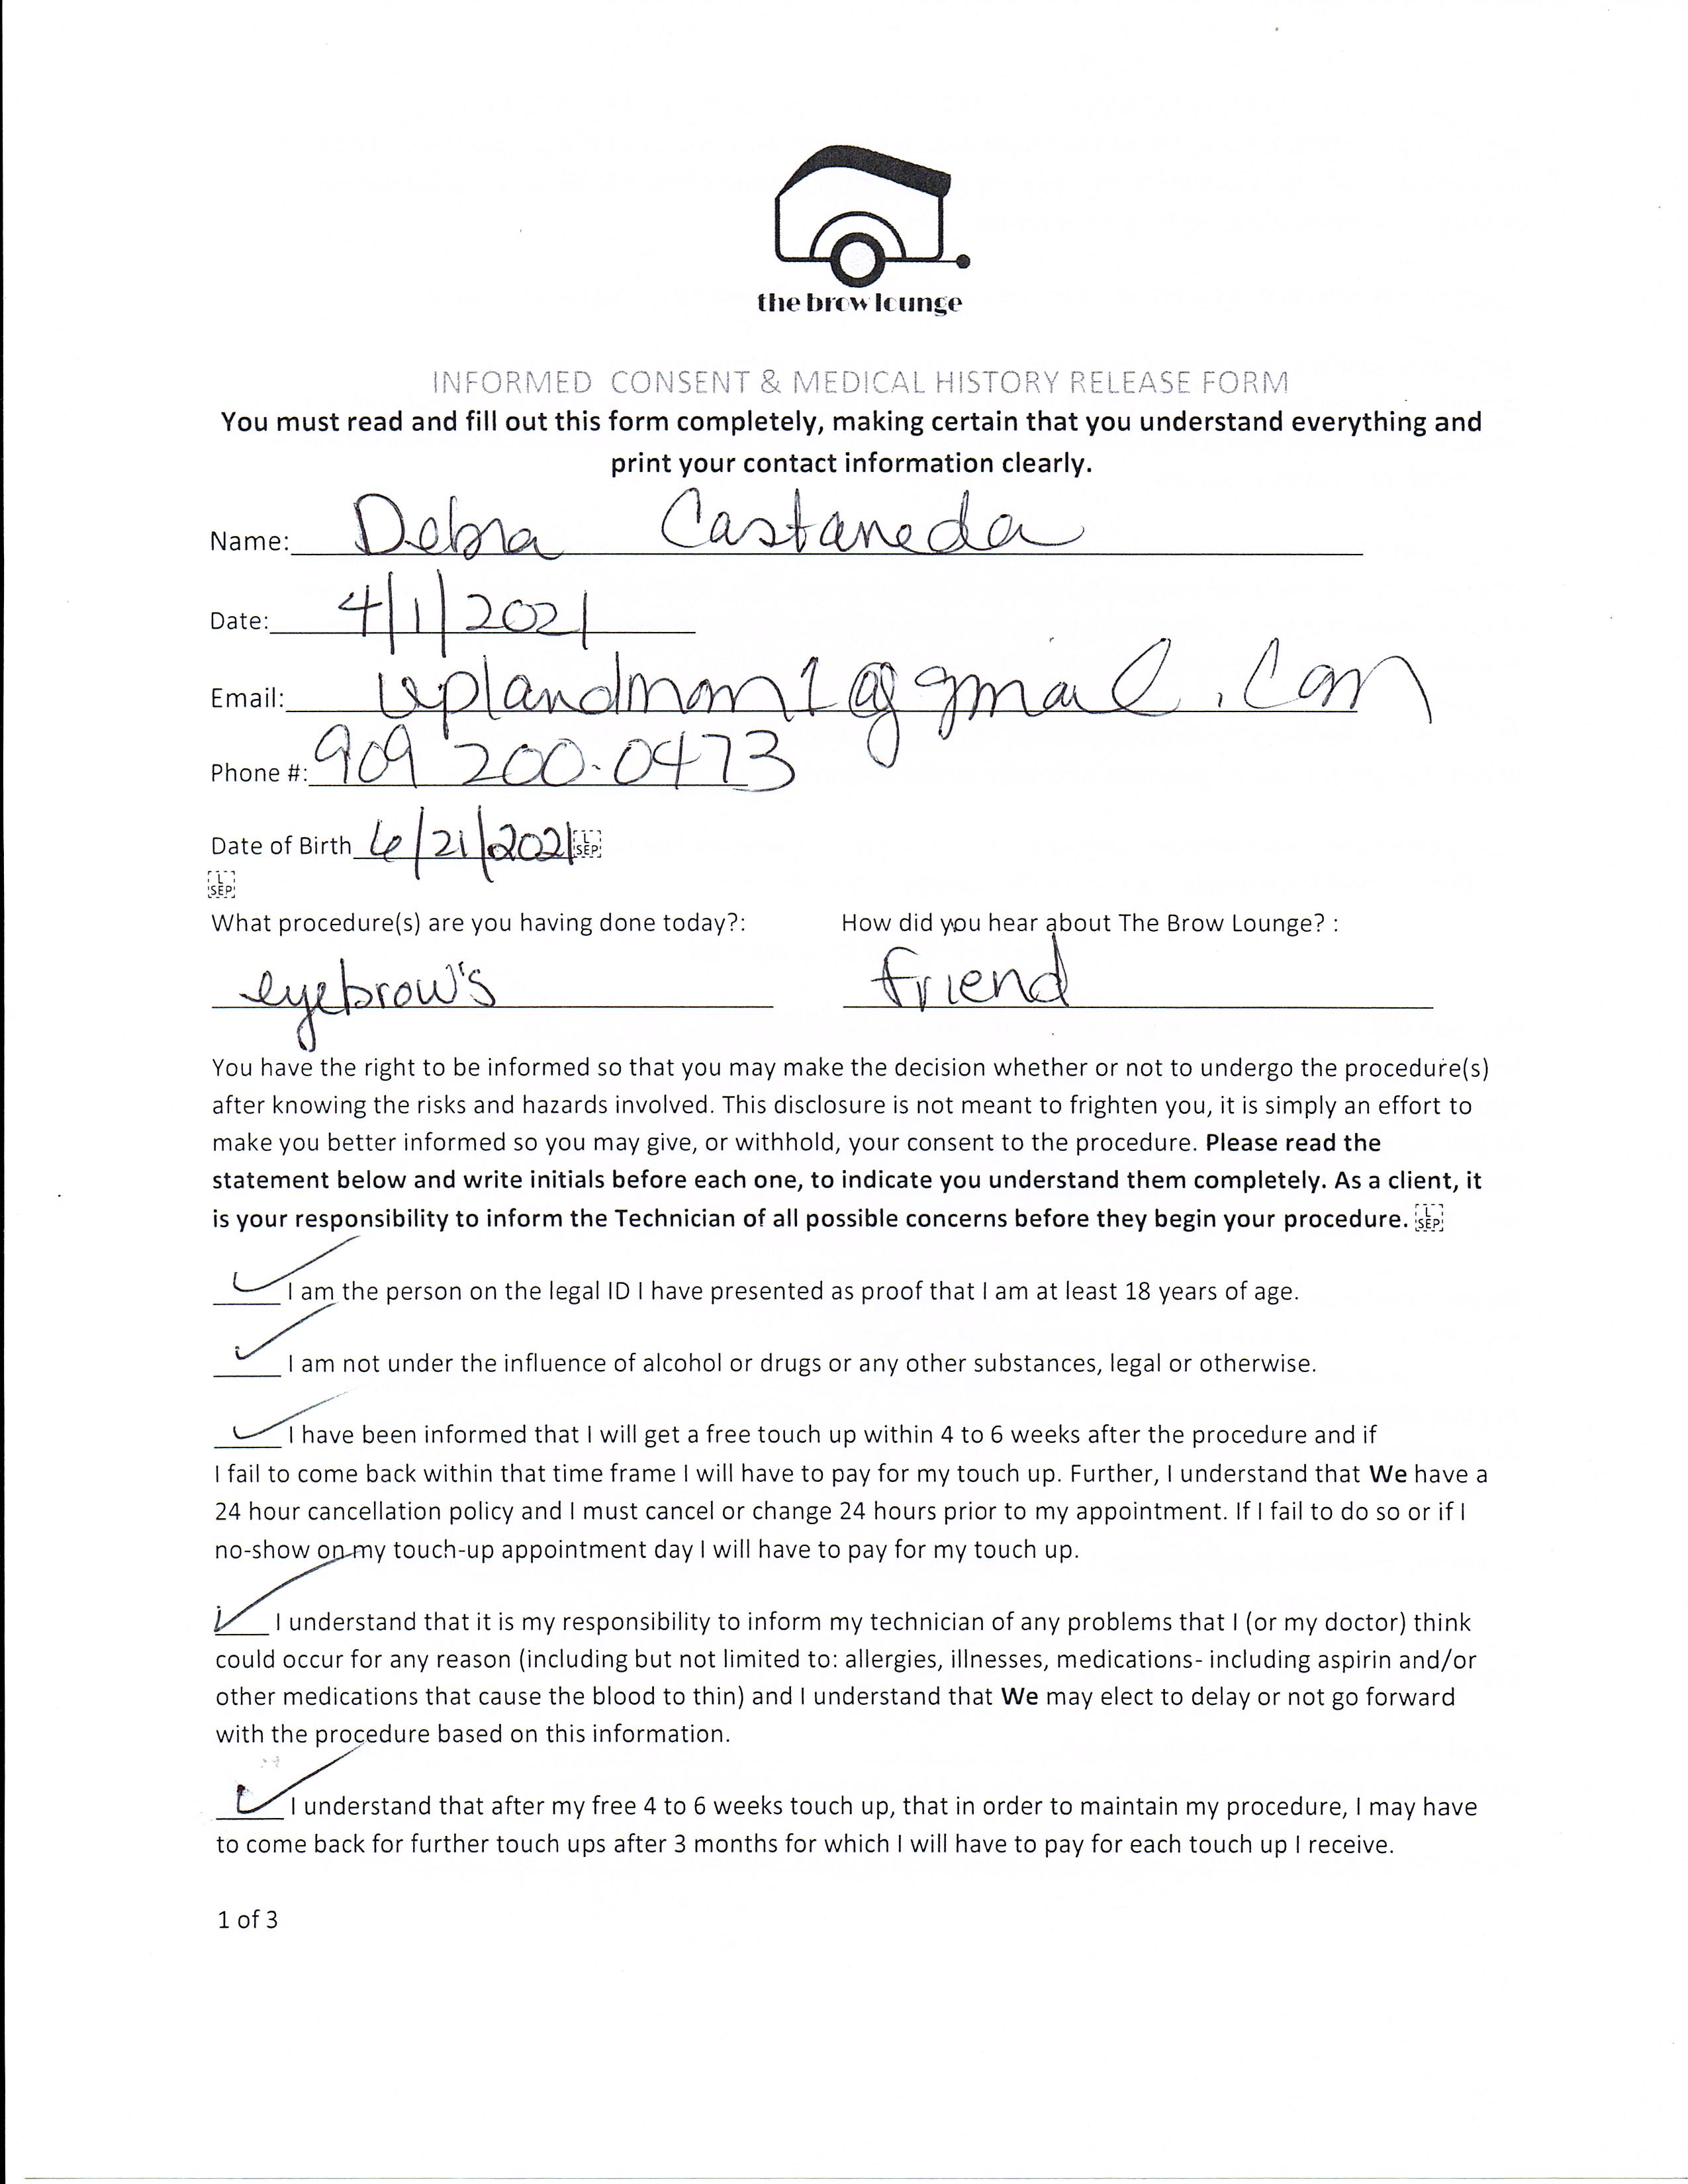 the brow lounge
INFORMED CONSENT & MEDICAL HISTORY RELEASE FORM
You must read and fill out this form completely, making certain that you understand everything and
print your contact information clearly.
Name: Debra Castaneda
Date: 4/1/2021
Email: uplandmom1@gmail.com
Phone #: 909 200-0473
Date of Birth 6/21/2021 L SEP
L SEP
What procedure(s) are you having done today?: How did you hear about The Brow Lounge? :
eyebrow's friend
You have the right to be informed so that you may make the decision whether or not to undergo the procedure(s)
after knowing the risks and hazards involved. This disclosure is not meant to frighten you, it is simply an effort to
make you better informed so you may give, or withhold, your consent to the procedure. Please read the
statement below and write initials before each one, to indicate you understand them completely. As a client, it
is your responsibility to inform the Technician of all possible concerns before they begin your procedure. L SEP
✓ I am the person on the legal ID I have presented as proof that I am at least 18 years of age.
✓ I am not under the influence of alcohol or drugs or any other substances, legal or otherwise.
✓ I have been informed that I will get a free touch up within 4 to 6 weeks after the procedure and if
I fail to come back within that time frame I will have to pay for my touch up. Further, I understand that We have a
24 hour cancellation policy and I must cancel or change 24 hours prior to my appointment. If I fail to do so or if I
no-show on my touch-up appointment day I will have to pay for my touch up.
✓ I understand that it is my responsibility to inform my technician of any problems that I (or my doctor) think
could occur for any reason (including but not limited to: allergies, illnesses, medications- including aspirin and/or
other medications that cause the blood to thin) and I understand that We may elect to delay or not go forward
with the procedure based on this information.
✓ I understand that after my free 4 to 6 weeks touch up, that in order to maintain my procedure, I may have
to come back for further touch ups after 3 months for which I will have to pay for each touch up I receive.
1 of 3